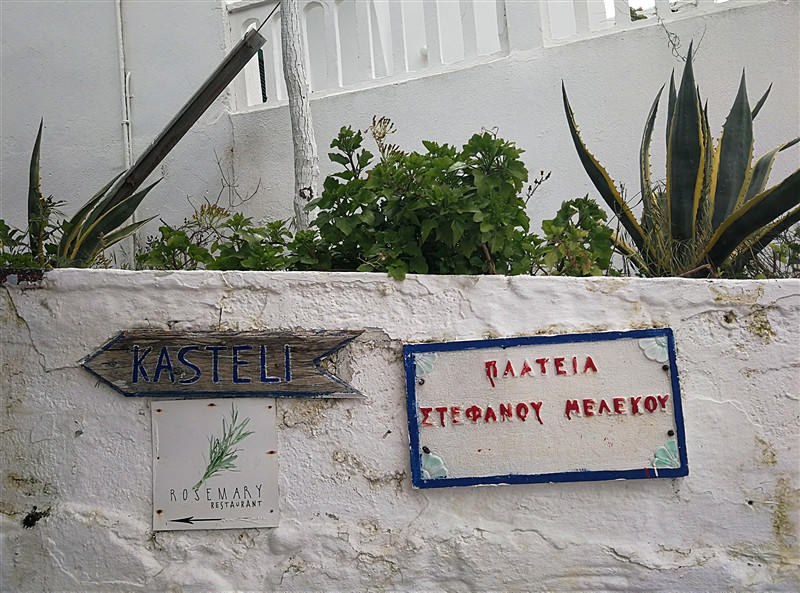 KASTELI
ROSEMARY
RESTAURANT
ΠΛΑΤΕΙΑ
ΣΤΕΦΑΝΟΥ ΜΕΛΕΚΟΥ